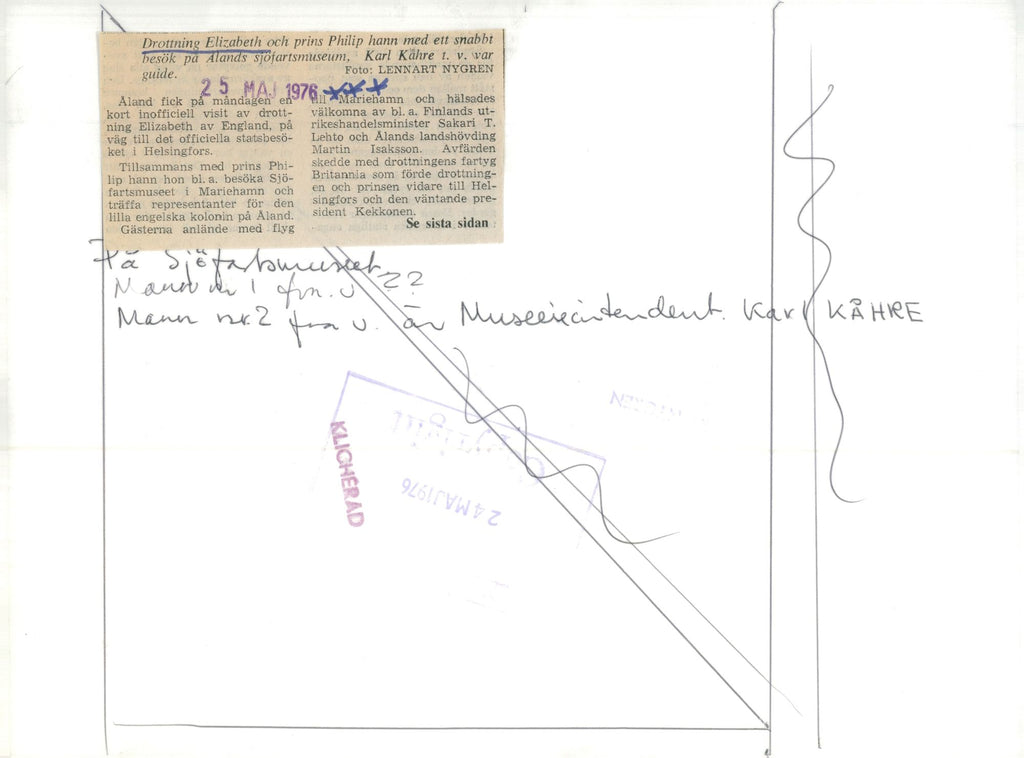 Drottning Elizabeth och prins Philip hann med ett snabbt
besök på Ålands sjöfartsmuseum, Karl Kåhre t. v. var
guide.
Foto: LENNART NYGREN
25 MAJ 1976
Åland fick på måndagen en
kort inofficiell visit av drott-
ning Elizabeth av England, på
väg till det officiella statsbesö-
ket i Helsingfors.
Tillsammans med prins Phi-
lip hann hon bl. a. besöka Sjö-
fartsmuseet i Mariehamn och
träffa representanter för den
lilla engelska kolonin på Åland.
Gästerna anlände med flyg
till Mariehamn och hälsades
välkomna av bl. a. Finlands ut-
rikeshandelsminister Sakari T.
Lehto och Ålands landshövding
Martin Isaksson. Avfärden
skedde med drottningens fartyg
Britannia som förde drottning-
en och prinsen vidare till Hel-
singfors och den väntande pre-
sident Kekkonen.
Se sista sidan
På Sjöfartsmuseet
Mann nr 1 frn. v ??
Mann nr. 2 frn v. är Museiintendent. Karl KÅHRE
NYGREN
Copyright
KLICHERAD
24 MAJ 1976